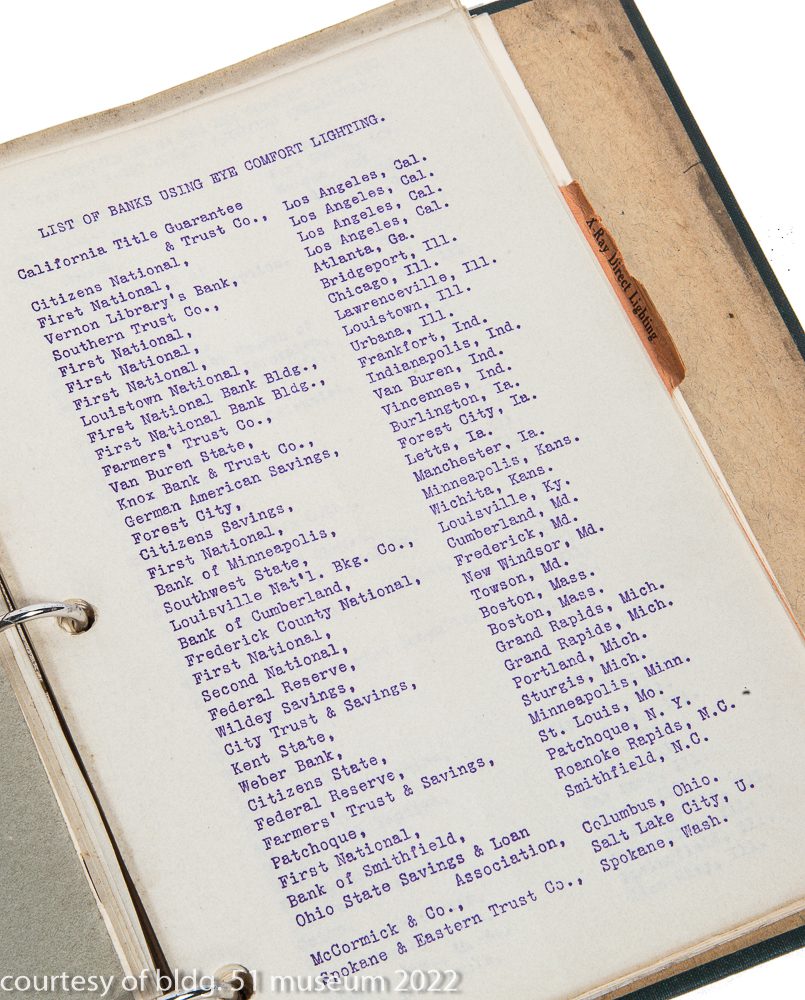 LIST OF BANKS USING EYE COMFORT LIGHTING.
California Title Guarantee
& Trust Co., Los Angeles, Cal.
Citizens National, Los Angeles, Cal.
First National, Los Angeles, Cal.
Vernon Library's Bank, Los Angeles, Cal.
Southern Trust Co., Atlanta, Ga.
First National, Bridgeport, Ill.
First National, Chicago, Ill.
First National, Lawrenceville, Ill.
Louistown National, Louistown, Ill.
First National Bank Bldg., Urbana, Ill.
First National Bank Bldg., Frankfort, Ind.
Farmers' Trust Co., Indianapolis, Ind.
Van Buren State, Van Buren, Ind.
Knox Bank & Trust Co., Vincennes, Ind.
German American Savings, Burlington, Ia.
Forest City, Forest City, Ia.
Citizens Savings, Letts, Ia.
First National, Manchester, Ia.
Bank of Minneapolis, Minneapolis, Kans.
Southwest State, Wichita, Kans.
Louisville Nat'l. Bkg. Co., Louisville, Ky.
Bank of Cumberland, Cumberland, Md.
Frederick County National, Frederick, Md.
First National, New Windsor, Md.
Second National, Towson, Md.
Federal Reserve, Boston, Mass.
Wildey Savings, Boston, Mass.
City Trust & Savings, Grand Rapids, Mich.
Kent State, Grand Rapids, Mich.
Weber Bank, Portland, Mich.
Citizens State, Sturgis, Mich.
Federal Reserve, Minneapolis, Minn.
Farmers' Trust & Savings, St. Louis, Mo.
Patchoque, Patchoque, N. Y.
First National, Roanoke Rapids, N.C.
Bank of Smithfield, Smithfield, N.C.
Ohio State Savings & Loan
Association, Columbus, Ohio.
McCormick & Co., Salt Lake City, U.
Spokane & Eastern Trust Co., Spokane, Wash.
X-Ray Direct Lighting
courtesy of bldg. 51 museum 2022